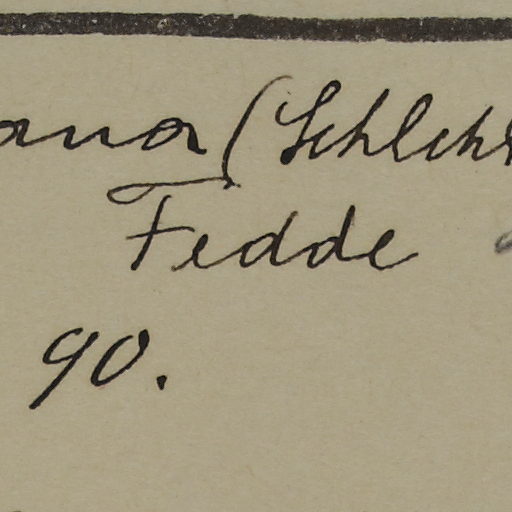 ana (Schlcht
Fedde
90.